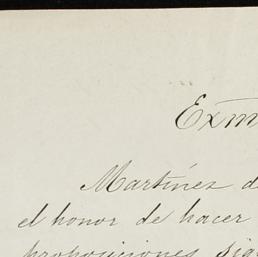 Exm
Martínez d
el honor de hacer
proposiciones sig